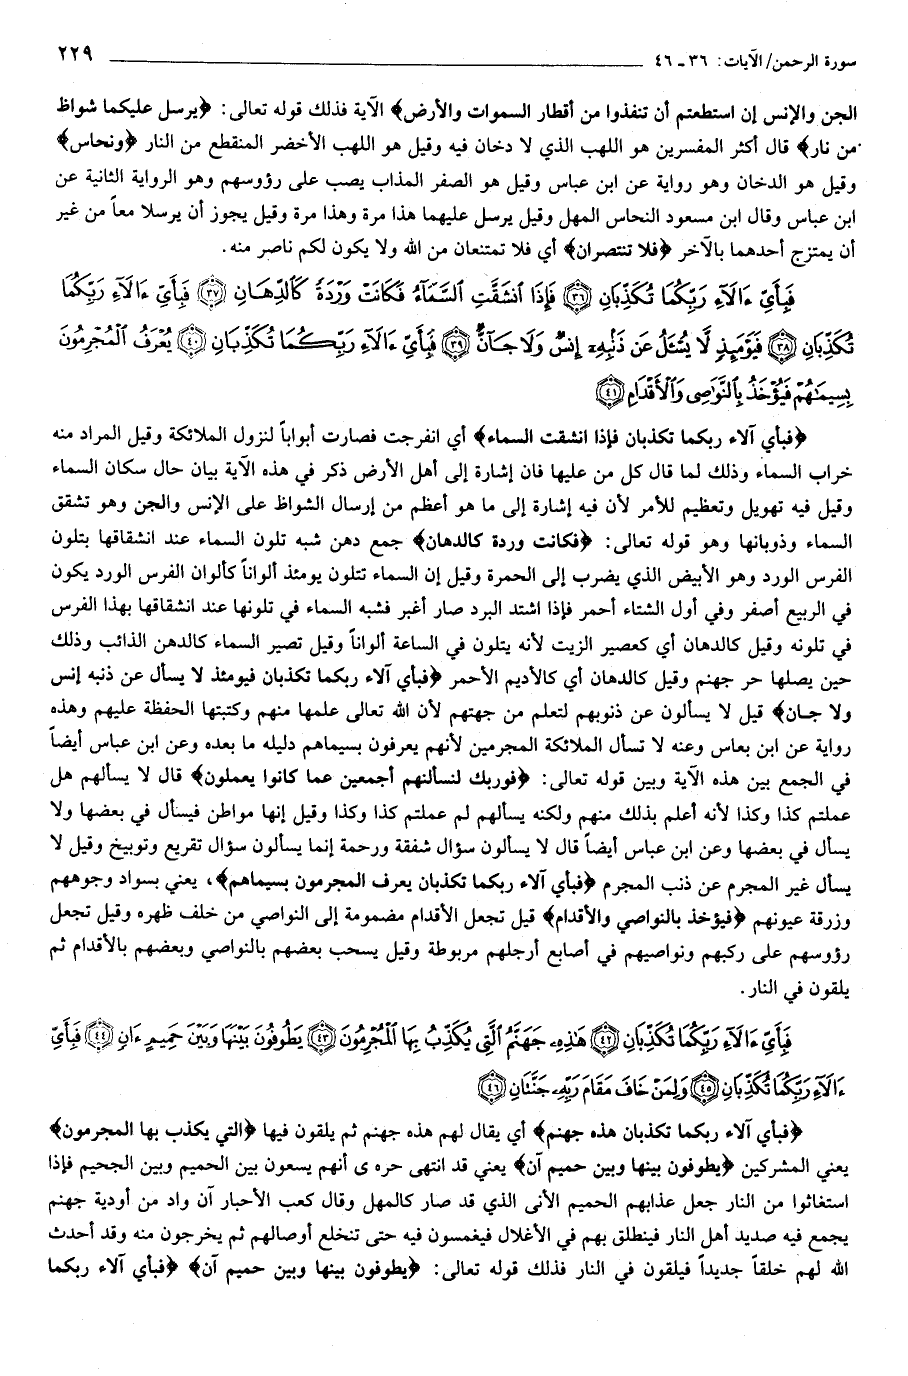 سورة الرحمن/ الآيات: ٣٦ ـ ٤٦ ٢٢٩
الجن والإنس إن استطعتم أن تنفذوا من أقطار السموات والأرض﴾ الآية فذلك قوله تعالى: ﴿يرسل عليكما شواظ
من نار﴾ قال أكثر المفسرين هو اللهب الذي لا دخان فيه وقيل هو اللهب الأخضر المنقطع من النار ﴿ونحاس﴾
وقيل هو الدخان وهو رواية عن ابن عباس وقيل هو الصفر المذاب يصب على رؤوسهم وهو الرواية الثانية عن
ابن عباس وقال ابن مسعود النحاس المهل وقيل يرسل عليهما هذا مرة وهذا مرة وقيل يجوز أن يرسلا معاً من غير
أن يمتزج أحدهما بالآخر ﴿فلا تنتصران﴾ أي فلا تمتنعان من الله ولا يكون لكم ناصر منه.
فَبِأَيِّ ءَالَآءِ رَبِّكُمَا تُكَذِّبَانِ ﴿٣٦﴾ فَإِذَا ٱنشَقَّتِ ٱلسَّمَآءُ فَكَانَتْ وَرْدَةً كَٱلدِّهَانِ ﴿٣٧﴾ فَبِأَيِّ ءَالَآءِ رَبِّكُمَا
تُكَذِّبَانِ ﴿٣٨﴾ فَيَوْمَئِذٍ لَّا يُسْـَٔلُ عَن ذَنۢبِهِۦٓ إِنسٌ وَلَا جَآنٌّ ﴿٣٩﴾ فَبِأَيِّ ءَالَآءِ رَبِّكُمَا تُكَذِّبَانِ ﴿٤٠﴾ يُعْرَفُ ٱلْمُجْرِمُونَ
بِسِيمَٰهُمْ فَيُؤْخَذُ بِٱلنَّوَٰصِى وَٱلْأَقْدَامِ ﴿٤١﴾
﴿فبأي آلاء ربكما تكذبان فإذا انشقت السماء﴾ أي انفرجت فصارت أبواباً لنزول الملائكة وقيل المراد منه
خراب السماء وذلك لما قال كل من عليها فان إشارة إلى أهل الأرض ذكر في هذه الآية بيان حال سكان السماء
وقيل فيه تهويل وتعظيم للأمر لأن فيه إشارة إلى ما هو أعظم من إرسال الشواظ على الإنس والجن وهو تشقق
السماء وذوبانها وهو قوله تعالى: ﴿فكانت وردة كالدهان﴾ جمع دهن شبه تلون السماء عند انشقاقها بتلون
الفرس الورد وهو الأبيض الذي يضرب إلى الحمرة وقيل إن السماء تتلون يومئذ ألواناً كألوان الفرس الورد يكون
في الربيع أصفر وفي أول الشتاء أحمر فإذا اشتد البرد صار أغبر فشبه السماء في تلونها عند انشقاقها بهذا الفرس
في تلونه وقيل كالدهان أي كعصير الزيت لأنه يتلون في الساعة ألواناً وقيل تصير السماء كالدهن الذائب وذلك
حين يصلها حر جهنم وقيل كالدهان أي كالأديم الأحمر ﴿فبأي آلاء ربكما تكذبان فيومئذ لا يسأل عن ذنبه إنس
ولا جان﴾ قيل لا يسألون عن ذنوبهم لتعلم من جهتهم لأن الله تعالى علمها منهم وكتبتها الحفظة عليهم وهذه
رواية عن ابن بعاس وعنه لا تسأل الملائكة المجرمين لأنهم يعرفون بسيماهم دليله ما بعده وعن ابن عباس أيضاً
في الجمع بين هذه الآية وبين قوله تعالى: ﴿فوربك لنسألنهم أجمعين عما كانوا يعملون﴾ قال لا يسألهم هل
عملتم كذا وكذا لأنه أعلم بذلك منهم ولكنه يسألهم لم عملتم كذا وكذا وقيل إنها مواطن فيسأل في بعضها ولا
يسأل في بعضها وعن ابن عباس أيضاً قال لا يسألون سؤال شفقة ورحمة إنما يسألون سؤال تقريع وتوبيخ وقيل لا
يسأل غير المجرم عن ذنب المجرم ﴿فبأي آلاء ربكما تكذبان يعرف المجرمون بسيماهم﴾، يعني بسواد وجوههم
وزرقة عيونهم ﴿فيؤخذ بالنواصي والأقدام﴾ قيل تجعل الأقدام مضمومة إلى النواصي من خلف ظهره وقيل تجعل
رؤوسهم على ركبهم ونواصيهم في أصابع أرجلهم مربوطة وقيل يسحب بعضهم بالنواصي وبعضهم بالأقدام ثم
يلقون في النار.
فَبِأَيِّ ءَالَآءِ رَبِّكُمَا تُكَذِّبَانِ ﴿٤٢﴾ هَٰذِهِۦ جَهَنَّمُ ٱلَّتِى يُكَذِّبُ بِهَا ٱلْمُجْرِمُونَ ﴿٤٣﴾ يَطُوفُونَ بَيْنَهَا وَبَيْنَ حَمِيمٍ ءَانٍ ﴿٤٤﴾ فَبِأَيِّ
ءَالَآءِ رَبِّكُمَا تُكَذِّبَانِ ﴿٤٥﴾ وَلِمَنْ خَافَ مَقَامَ رَبِّهِۦ جَنَّتَانِ ﴿٤٦﴾
﴿فبأي آلاء ربكما تكذبان هذه جهنم﴾ أي يقال لهم هذه جهنم ثم يلقون فيها ﴿التي يكذب بها المجرمون﴾
يعني المشركين ﴿يطوفون بينها وبين حميم آن﴾ يعني قد انتهى حره ى أنهم يسعون بين الحميم وبين الجحيم فإذا
استغاثوا من النار جعل عذابهم الحميم الأنى الذي قد صار كالمهل وقال كعب الأحبار آن واد من أودية جهنم
يجمع فيه صديد أهل النار فينطلق بهم في الأغلال فيغمسون فيه حتى تنخلع أوصالهم ثم يخرجون منه وقد أحدث
الله لهم خلقاً جديداً فيلقون في النار فذلك قوله تعالى: ﴿يطوفون بينها وبين حميم آن﴾ ﴿فبأي آلاء ربكما